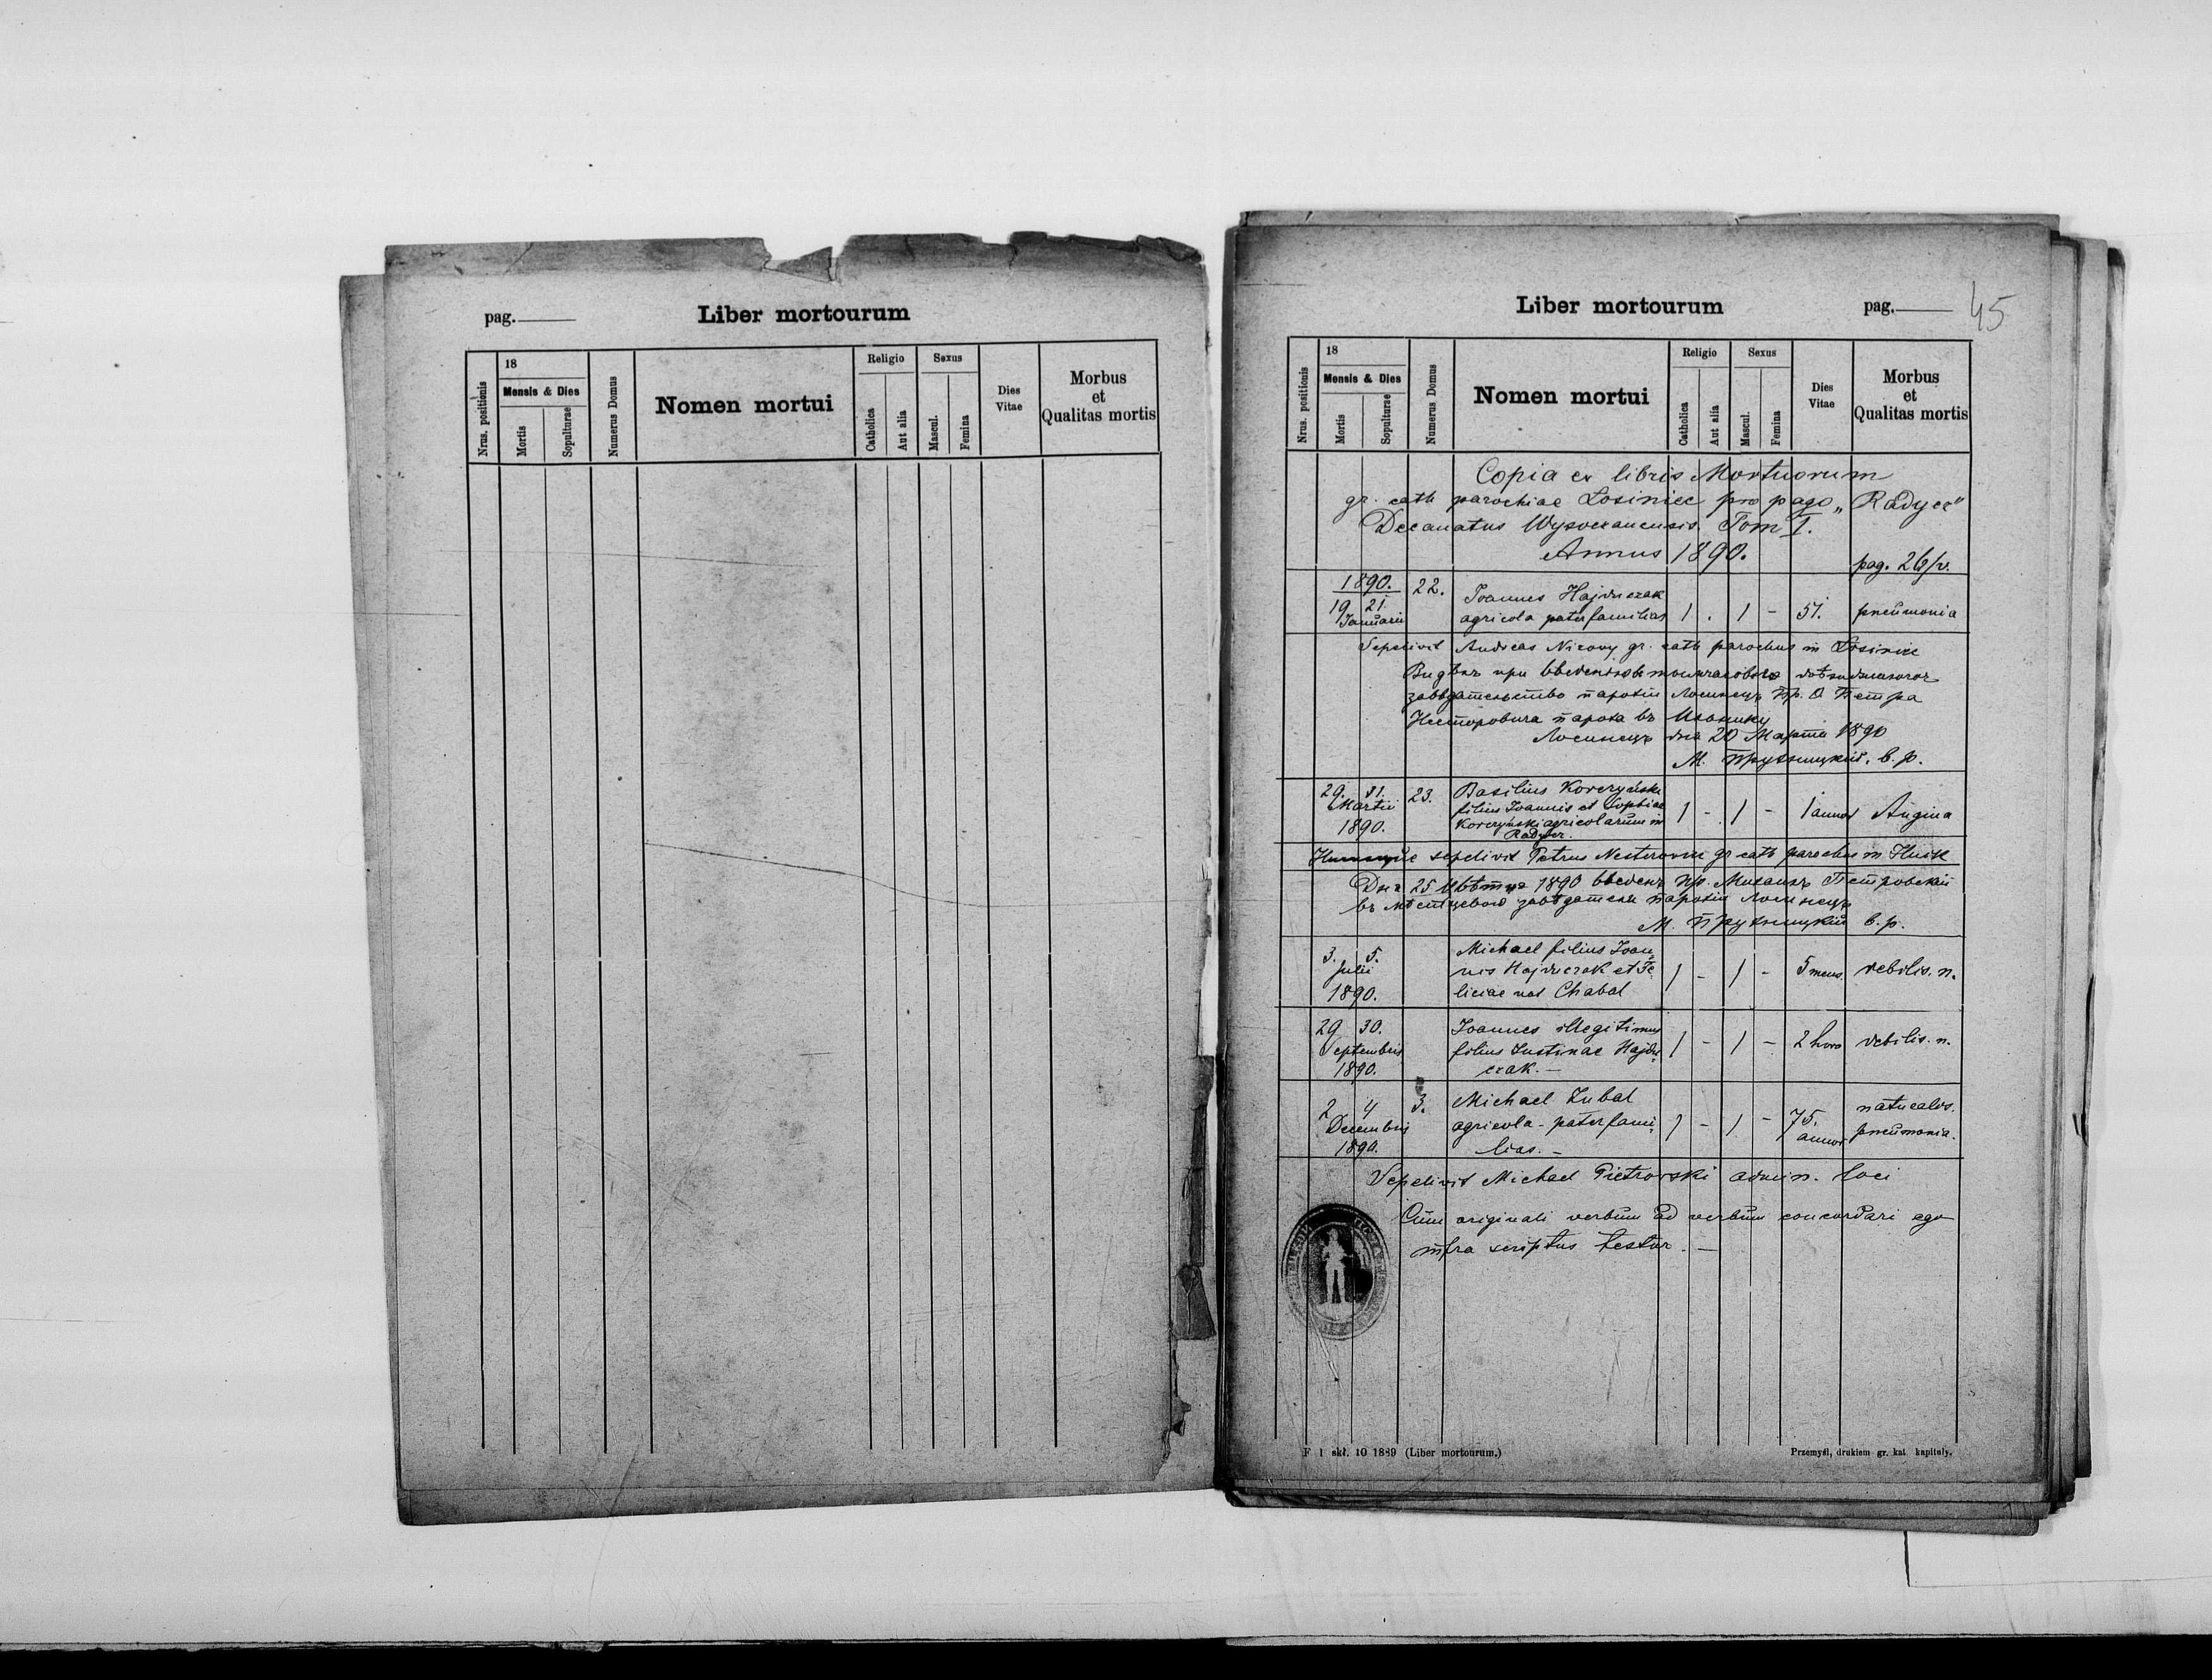 pag.
Liber mortourum
Nrus. positionis
18
Mensis & Dies
Mortis
Sopulturae
Numerus Domus
Nomen mortui
Religio
Catholica
Aut alia
Sexus
Mascul.
Femina
Dies
Vitae
Morbus
et
Qualitas mortis
Liber mortourum
pag. 45
Nrus. positionis
18
Mensis & Dies
Mortis
Sopulturae
Numerus Domus
Nomen mortui
Religio
Catholica
Aut alia
Sexus
Mascul.
Femina
Dies
Vitae
Morbus
et
Qualitas mortis
Copia ex libris Mortuorum
gr. cath parochiae Łosiniec pro pago „Radycz"
Decanatus Wysocianensis. Tom I.
Annus 1890.
pag. 26/v.
1890.
19 21.
Januarii
22.
Joannes Hajduczak
agricola paterfamilias
1 . 1 - 51. pneumonia
Sepelivit Andreas Nicowy gr. cath parochus in Łosiniec
Видѣлъ при введенію
завѣдательство парохіи Лосинецъ Пр. О Петра
Несторовича пароха въ
Лосинецъ дня 20 Марта 1890
М. в. р.
29. 31.
Martii
1890.
23.
Basilius Korczyński
filius Joannis et Sophiae
Korczyński agricolarum in
Radycz.
1 - 1 - 1 annus Angina
sepelivit Petrus Nesterowicz gr cath parochus in
Дня 25 1890 введенъ Пр. Михаилъ Петровскій
въ завѣдателя парохіи Лосинецъ
М. в. р.
3. 5.
Julii
1890.
Michael filius Joan
nis Hajduczak et Fe
liciae nat Chabal
1 - 1 - 5 mens. debilis. n.
29 30.
Septembris
1890.
Joannes illegitimus
filius Justinae Hajdu
czak. -
1 - 1 - 2 hora debilis. n.
2 4
Decembris
1890.
3.
Michael Zubal
agricola - paterfami
lias. -
1 - 1 - 75.
annor
naturalis.
pneumonia.
Sepelivit Michael Pietrowski admin. loci
Cum originali verbum ad verbum concordari ego
infra scriptus testor. -
F 1 skł. 10 1889 (Liber mortourum.)
Przemyśl, drukiem gr. kat kapituły.